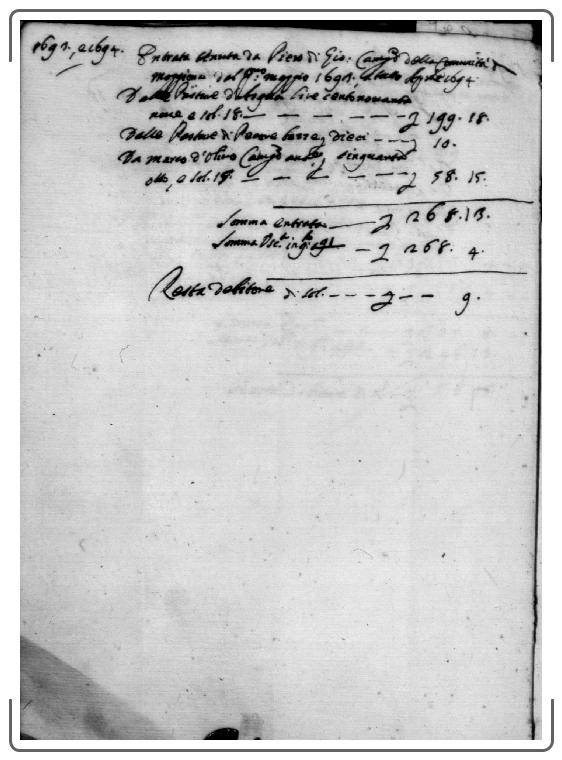 1693, e 1694.
Entrata tenuta da Piero di Gio: Camerº della Comunità di
moggima dal pmº maggio 1693, a tutto Aprile 1694
Dalle Pasture di Legna Lire centonovanta
nove e sol. 18. — — — — — £ 199. 18.
Dalle Pasture di Pecore forre, dieci — — — £ 10.
Da marco d'Olivo Camerº antº, cinquanta
otto, e sol. 15. — — — — — £ 58. 15.
Somma entrata — £ 268. 13.
Somma Usc.ta — £ 268. 4.
Resta debitore di sol. — — — £ — — 9.